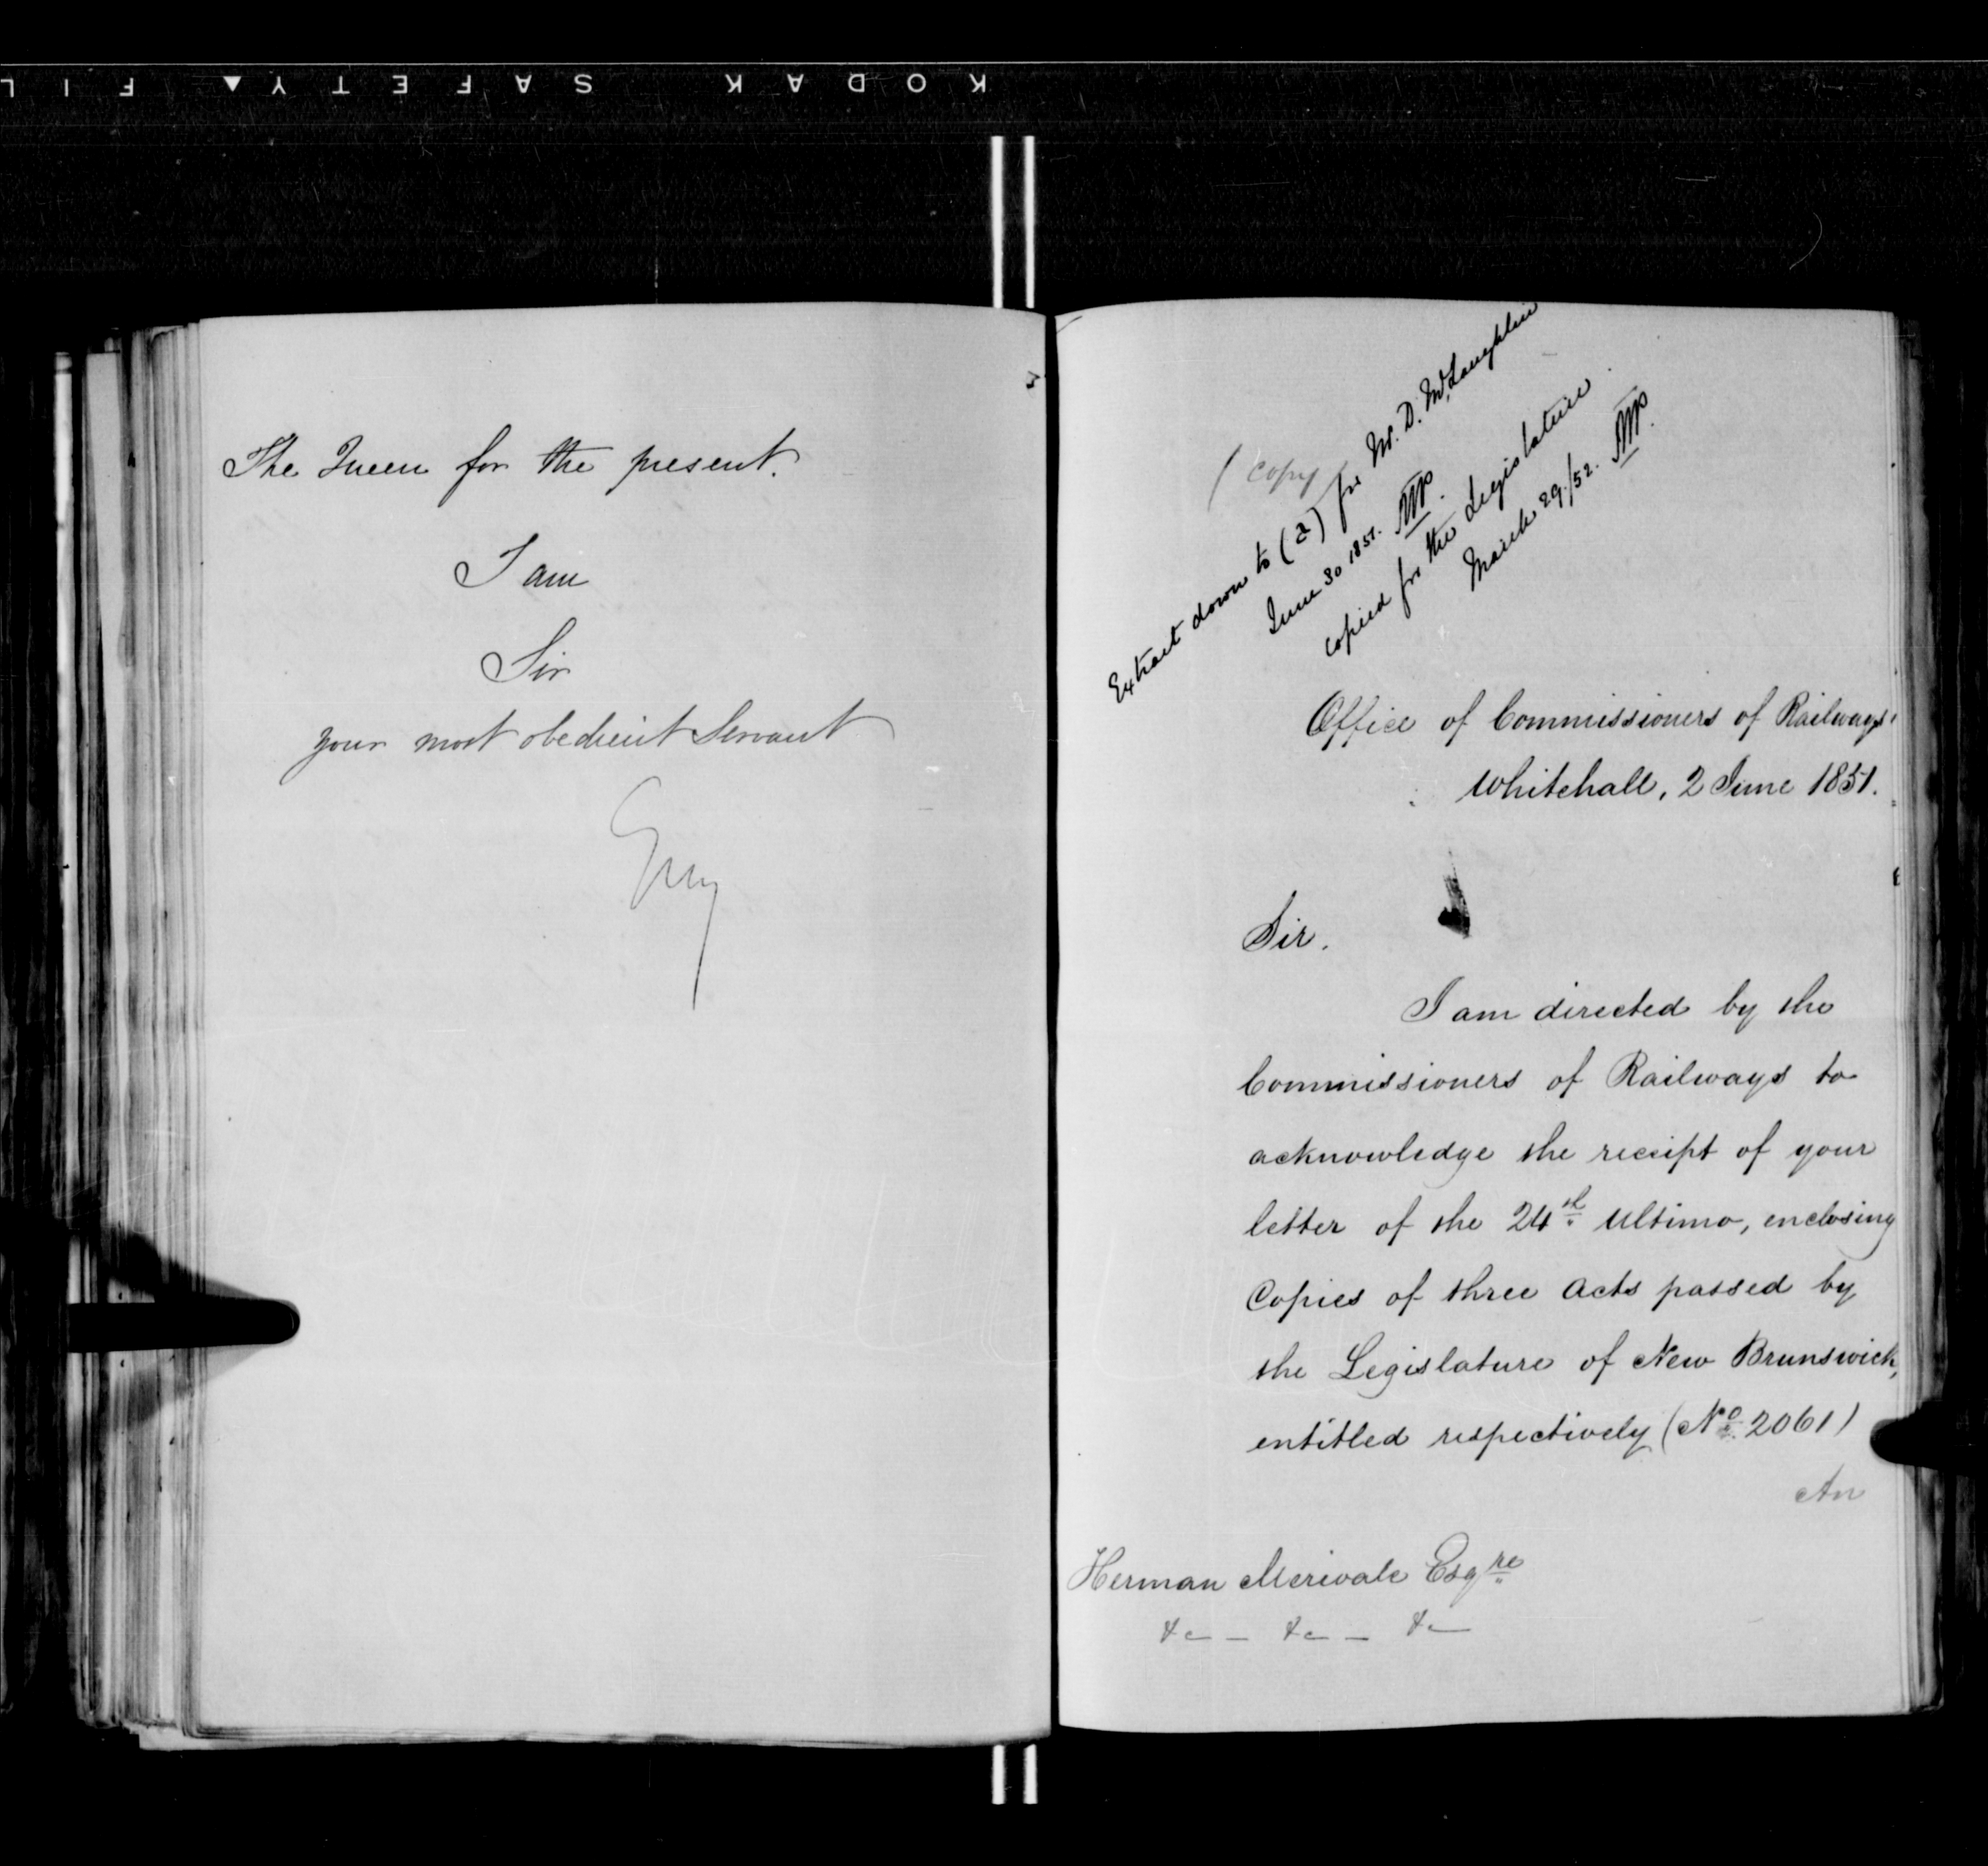 KODAK SAFETY▲ FIL
The Queen for the present.
I am
Sir
your most obedient Servant
Grey
(Copy
Extract down to (a) for Mr. D. McLaughlin
June 30 1851.
Copied for the Legislature
March 29./52.
Office of Commissioners of Railways
Whitehall, 2 June 1851.
Sir.
I am directed by the
Commissioners of Railways to
acknowledge the receipt of your
letter of the 24th Ultimo, enclosing
Copies of three Acts passed by
the Legislature of New Brunswick,
entitled respectively (No. 2061)
An
Herman Merivale Esqre
&c _ &c _ &c